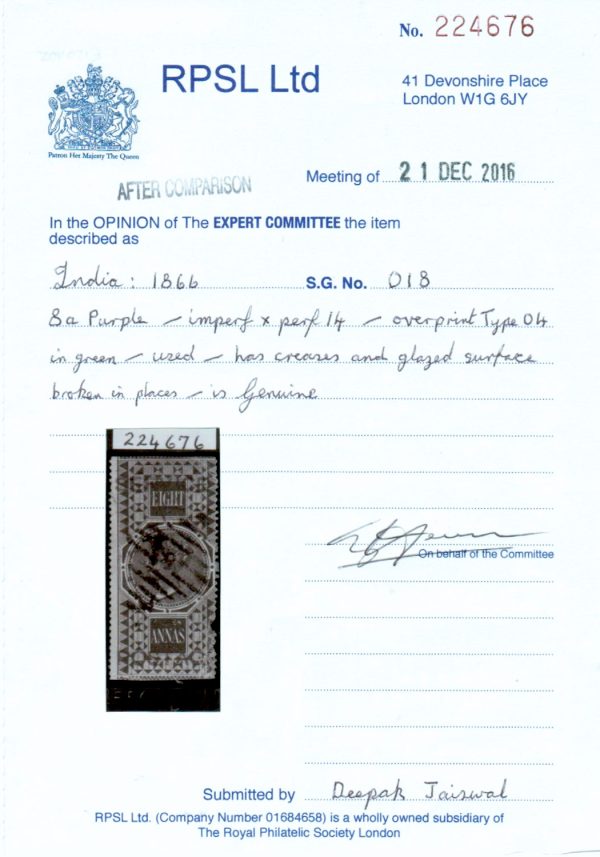 No. 224676
RPSL Ltd
41 Devonshire Place
London W1G 6JY
Patron Her Majesty The Queen
AFTER COMPARISON
Meeting of 21 DEC 2016
In the OPINION of The EXPERT COMMITTEE the item
described as
India: 1866 S.G. No. 018
8a Purple – imperf x perf 14 – overprint Type 04
in green – used – has creases and glazed surface
broken in places – is Genuine
224676
EIGHT
ANNAS
On behalf of the Committee
Submitted by Deepak Jaiswal
RPSL Ltd. (Company Number 01684658) is a wholly owned subsidiary of
The Royal Philatelic Society London